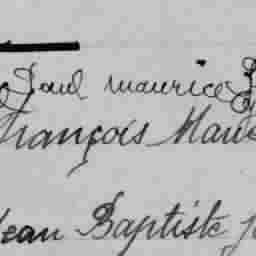 Paul Maurice
François
Jean Baptiste